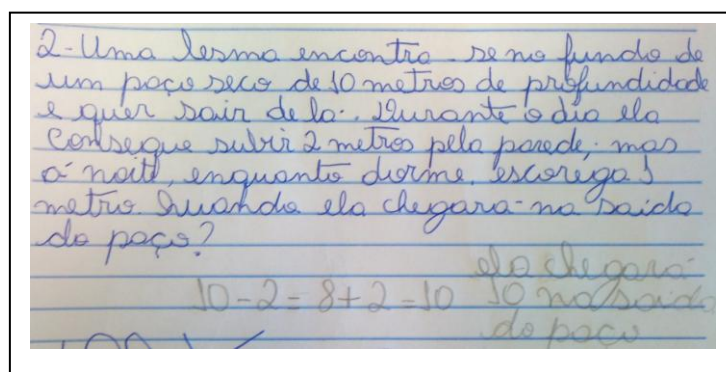 2- Uma lesma encontra-se no fundo de
um poço seco de 10 metros de profundidade
e quer sair de la. Durante o dia ela
consegue subir 2 metros pela parede, mas
á noite, enquanto dorme, escorega 1
metro. Quando ela chegara na saida
do poço?
ela chegará
10-2=8+2=10 10 na saida
do poço